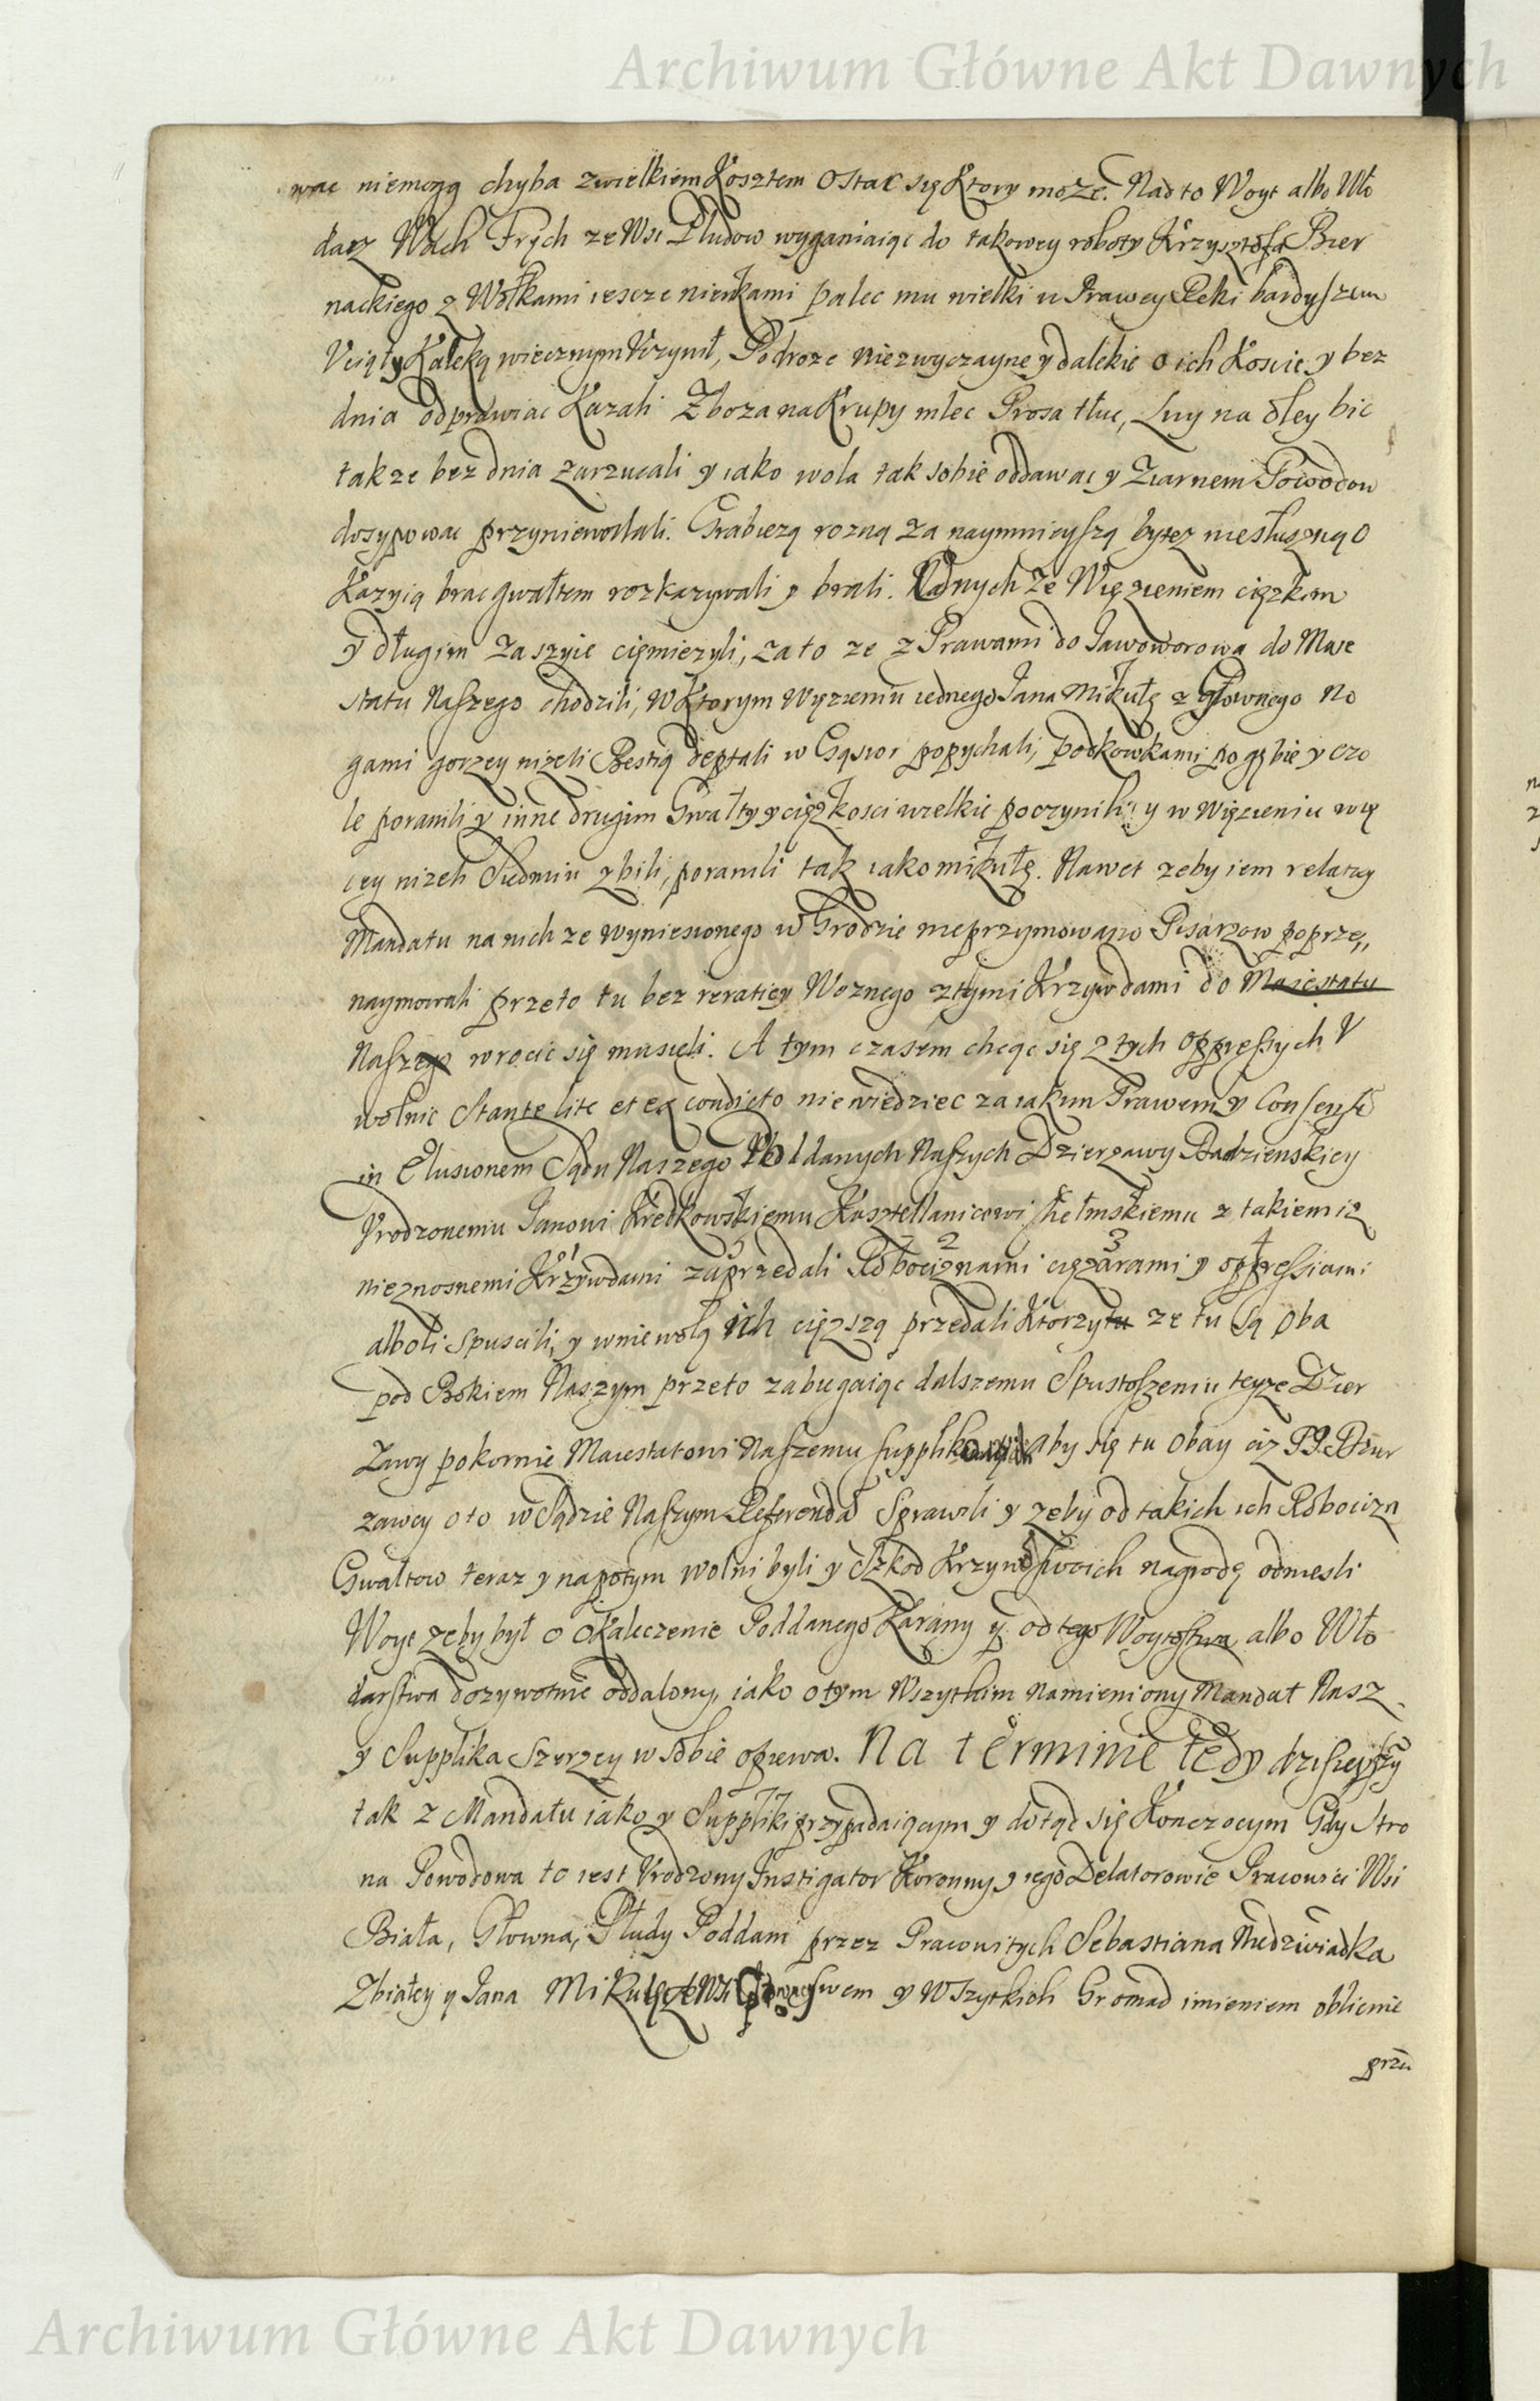 Archiwum Główne Akt Dawnych
wac niemogą chyba zwielkiem Kosztem Ostac się Ktory moze. Nad to Woyt albo Wło
darz Wach Frych ze Wsi Pludow wyganiaiąc do takowey roboty Krzysztofa Bier
nackiego z Wołkami iescze nieukami palec mu wielki u Prawey Ręki bardyszem
Uciął y Kaleką wiecznym Uczynił, Podroze niezwyczayne y dalekie o ich Koscie y bez
dnia odprawiac Kazali Zboza na Krupy mlec Prosa tłuc, Lny na oley bic
takze bez dnia zarzucali y iako wola tak sobie oddawac y Ziarnem Powodow
dosypowac przyniewolali. Grabiezą rozną za naymnieyszą bytez niesłuszną O
Kazyią brac gwałtem rozkazywali y brali. Radnych ze Więzieniem cięzkim
y długim za szyie ciemiezyli, za to ze z Prawami do Jawoworowa do Maie
statu Naszego chodzili, W Ktorym Więzieniu iednego Jana Mikułę z Głownego No
gami gorzey nizeli Bestią deptali w Gąsior popychali, podkowkami po gębie y czo
le poranili y inne drugim Gwałty y cięzkosci wielkie poczynili y w Więzieniu wię
cey nizeli Siedmiu zbili, poranili tak iako mikułę. Nawet zeby iem relacyy
Mandatu na nich ze wyniesionego w Grodzie nieprzymowano Pisarzow poprze„
naymowali przeto tu bez reratiey Woznego z tymi Krzywdami do Maiestatu
Naszego wrocic się musieli. A tym czasem chcąc się z tych oppressych V
wolnic Stante lite et ex condicto niewiedziec za iakim Prawem y Consense
in Elusionem Sądu Naszego Poddanych Naszych Dzierzawy Badzienskiey
Urodzonemu Janowi Kretkowskiemu Kasztellanicowi Chełmskiemu z takiemiz
nieznosnemi Krzywdami zaprzedali Robociznami cięzarami y oppressiami
alboli Spuscili, y w niewolą ich cięzszą przedali Ktorzy tu ze tu Są Oba
pod Bokiem Naszym przeto zabiegaiąc dalszemu Spustoszeniu teyze Dzier
zawy pokornie Maiestatowi Naszemu supplikowali aby się tu Obay ciz PP. Dzier
zawcy o to w Sądzie Naszym Referenda Sprawili y zeby od takich ich Robocizn
Gwałtow teraz y napotym wolni byli y Szkod Krzywd swoich nagrodę odniesli
Woyt zeby był o Okaleczenie Poddanego Karany y od tego Woytostwa albo Wło
darstwa dozywotnie oddalony, iako o tym Wszytkim namieniony Mandat Nasz
y Supplika Szerzey w sobie opiewa. Na terminie tedy dzisieyszy
tak z Mandatu iako y Suppliki przypadaiącym y dotąd się Konczocym Gdy Stro
na Powodowa to iest Urodzony Instigator Koronny y iego Delatorowie Pracowici Wsi
Biała, Głowna, Płudy Poddani przez Pracowitych Sebastiana Niedzwiadka
Zbiałey y Jana Mikułę ze Wsi swem y Wszytkich Gromad imieniem oblicznie
przu
Archiwum Główne Akt Dawnych